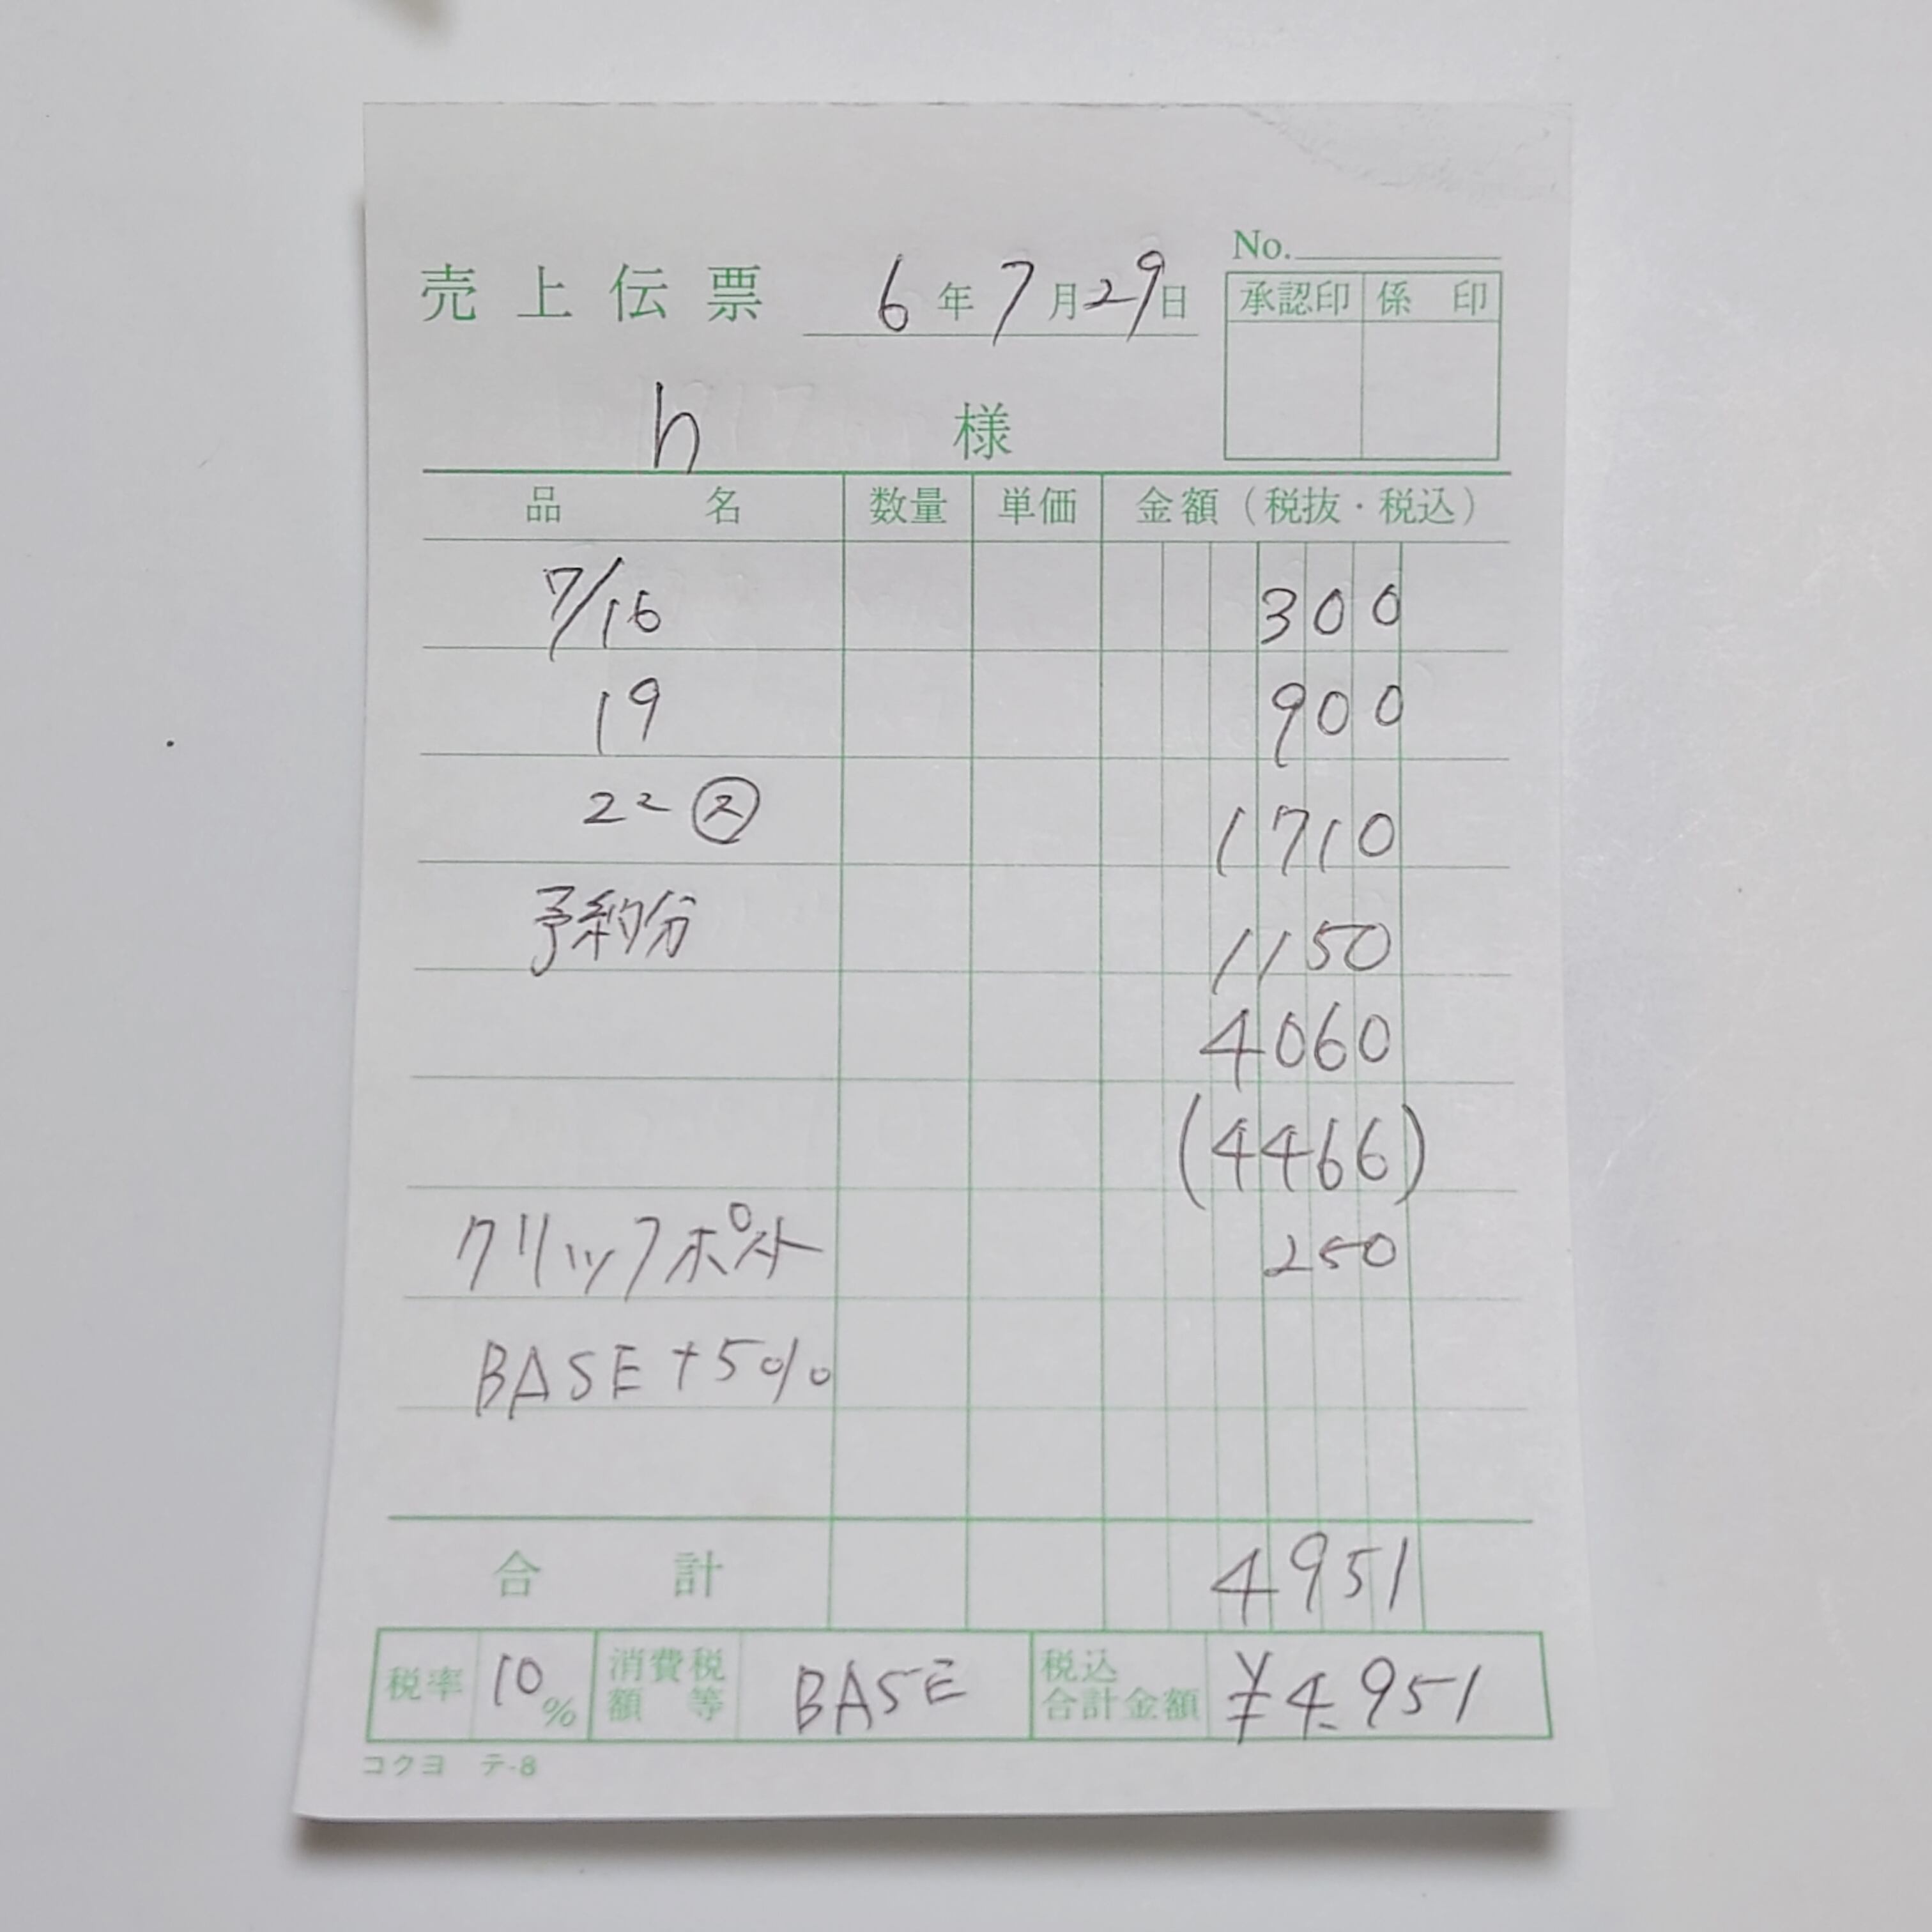 No.
売上伝票 6年7月29日
承認印 係印
h 様
品名 数量 単価 金額(税抜・税込)
7/16 300
19 900
22 ㋜ 1710
予約分 1150
4060
(4466)
クリックポスト 250
BASE+5%
合計 4951
税率 10% 消費税額等 BASE 税込合計金額 ¥4.951
コクヨ テ-8